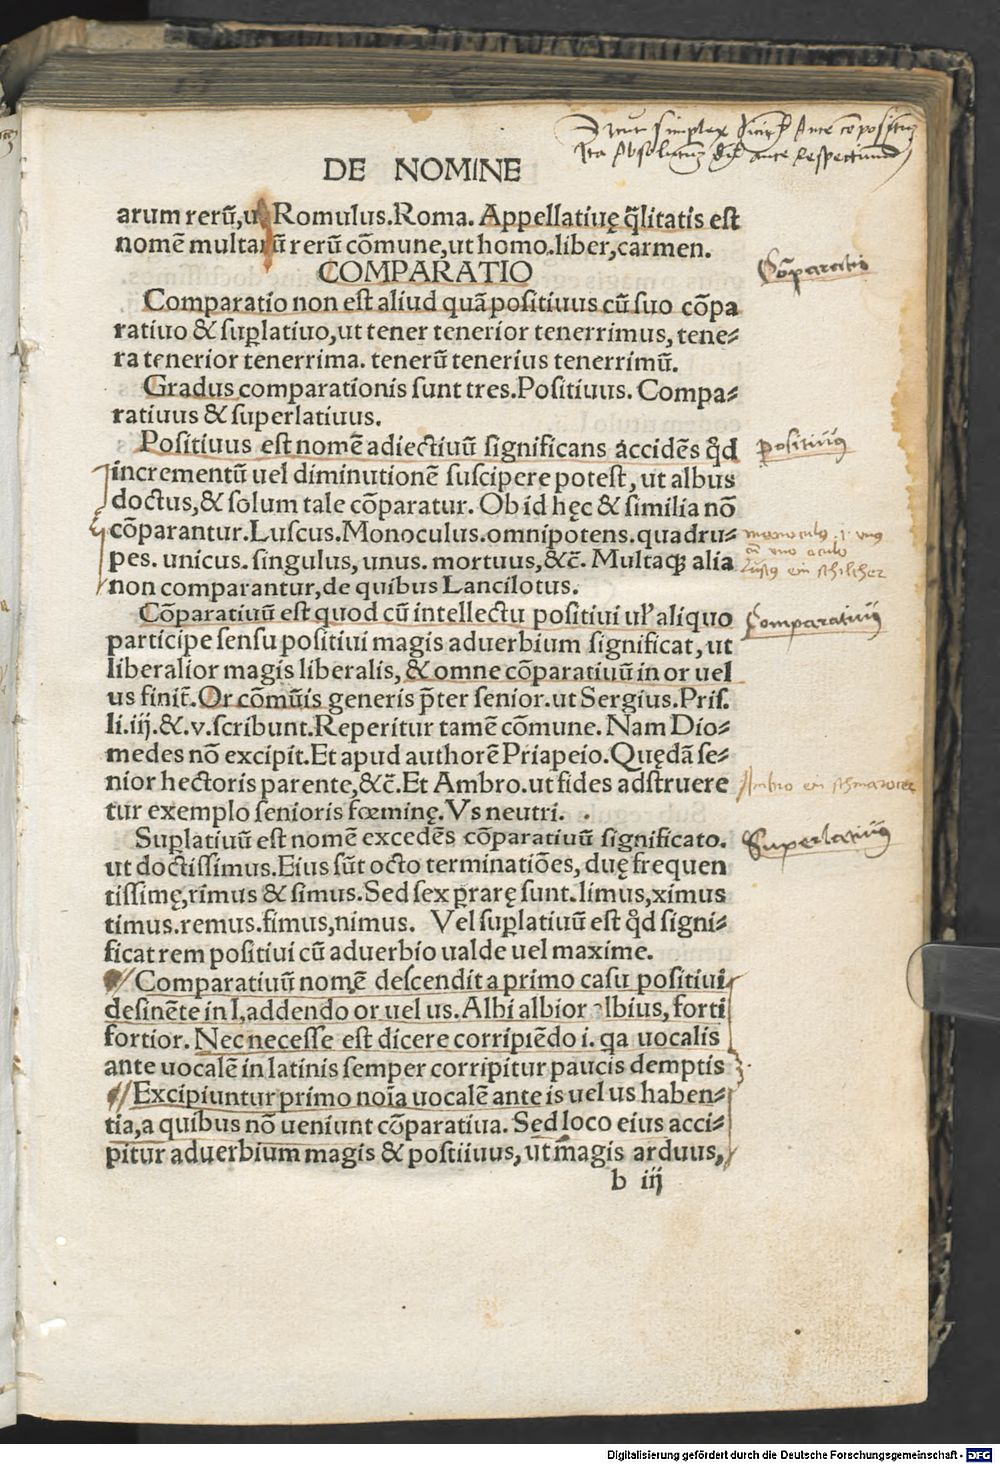 DE NOMINE
arum rerū, Romulus.Roma. Appellatiuę q̄litatis est
nomē multarū rerū cōmune,ut homo.liber,carmen.
COMPARATIO
Cōparatio
Comparatio non est aliud quā positiuus cū suo cōpa
ratiuo & suꝑlatiuo,ut tener tenerior tenerrimus, tene⸗
ra tenerior tenerrima. tenerū tenerius tenerrimū.
Gradus comparationis sunt tres.Positiuus. Compa⸗
ratiuus & superlatiuus.
Positiuus est nomē adiectiuū significans accidēs qd̄
positiuus
incrementū uel diminutionē suscipere potest, ut albus
doctus,& solum tale cōparatur. Ob id hęc & similia nō
cōparantur.Luscus.Monoculus.omnipotens.quadru⸗
pes. unicus. singulus, unus. mortuus,&c̄. Multaqꝫ alia
uno oculo
ein schilcher
non comparantur,de quibus Lancilotus.
Cōparatiuū est quod cū intellectu positiui ul' aliquo
Comparatiuus
participe sensu positiui magis aduerbium significat, ut
liberalior magis liberalis, & omne cōparatiuū in or uel
us finit̄.Or cōmūis generis p̄ter senior.ut Sergius.Pris.
li.iij.&.v.scribunt.Reperitur tamē cōmune. Nam Dio⸗
medes nō excipit.Et apud authorē Priapeio.Quędā se⸗
nior hectoris parente,&c̄.Et Ambro.ut fides adstruere
Ambro ein schmarotzer
tur exemplo senioris fœminę.Vs neutri.
Suꝑlatiuū est nomē excedēs cōparatiuū significato.
Superlatiuus
ut doctissimus.Eius sūt octo terminatiōes, duę frequen
tissimę,rimus & simus.Sed sex ꝑrarę sunt.limus,ximus
timus.remus.fimus,nimus. Vel suꝑlatiuū est qd̄ signi⸗
ficat rem positiui cū aduerbio ualde uel maxime.
Comparatiuū nomē descendit a primo casu positiui
desinēte in I,addendo or uel us.Albi albior albius, forti
fortior. Nec necesse est dicere corripiēdo i. qa uocalis
ante uocalē in latinis semper corripitur paucis demptis
Excipiuntur primo noīa uocalē ante is uel us haben⸗
tia,a quibus nō ueniunt cōparatiua. Sed loco eius acci⸗
pitur aduerbium magis & postiiuus, ut magis arduus,
b iij
Digitalisierung gefördert durch die Deutsche Forschungsgemeinschaft - DFG